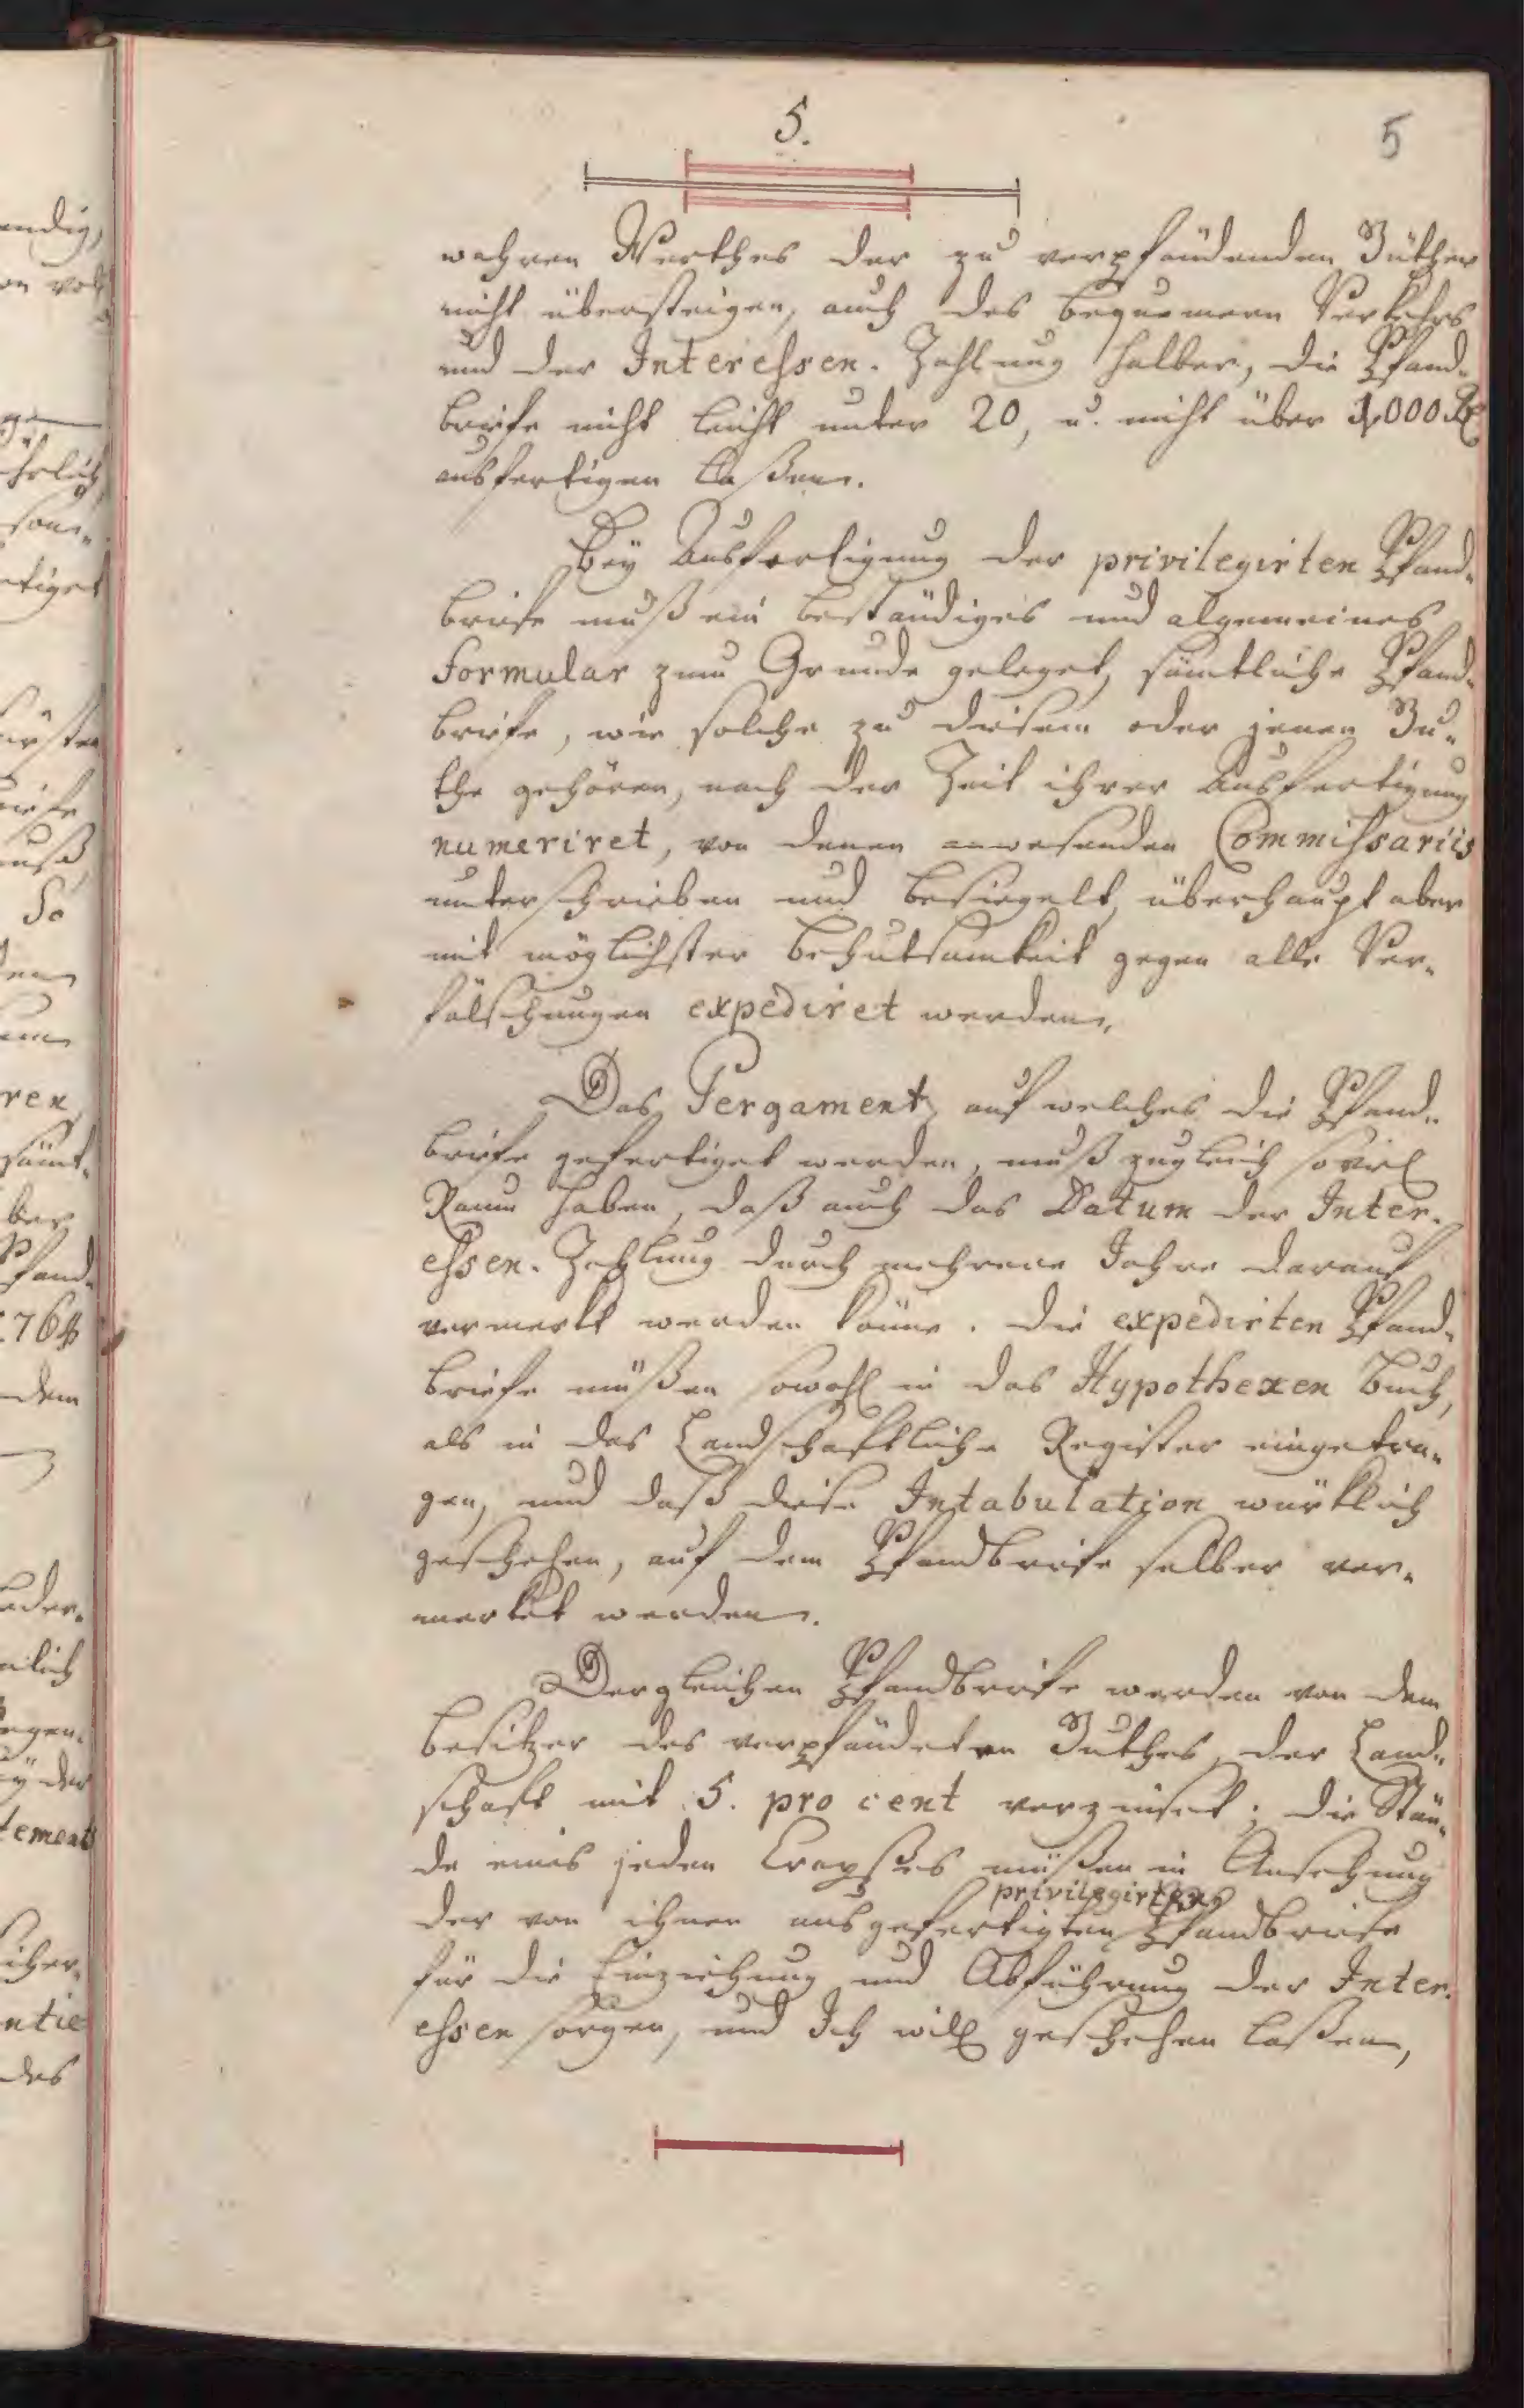 5.
5
wahren Werthes der zu verpfändenden Güther
nicht übersteigen, auch des bequemern Verkehrs
und der Interessen-Zahlung halber, die Pfand-
briefe nicht leicht unter 20, u. nicht über 1,000 Rt
ausfertigen laßen.
Bey Ausfertigung der privilegirten Pfand-
briefe muß ein beständiges und algemeines
Formular zum Grunde geleget, sämtliche Pfand-
briefe, wie solche zu diesem oder jenen Gu-
the gehören, nach der Zeit ihrer Ausfertigung
numeriret, von denen anwesenden Commissariis
unterschrieben und besiegelt, überhaupt aber
mit möglichster Behutsamkeit gegen alle Ver-
fälschungen expediret werden.
Das Pergament, auf welches die Pfand-
briefe gefertiget werden, muß zugleich soviel
Raum haben, daß auch das Datum der Inter-
essen-Zahlung durch mehrere Jahre darauf
vermerkt werden könne. Die expedirten Pfand-
briefe müßen sowohl in das Hypotheken Buch,
als in das Landschaftliche Register eingetra-
gen, und daß diese Intabulation würklich
geschehen, auf dem Pfandbriefe selber ver-
merket werden.
Dergleichen Pfandbriefe werden von dem
Besitzer des verpfändeten Guthes, der Land-
schaft mit 5. pro cent verzinset; die Stän-
de eines jeden Creyßes müßen in Ansehung
privilegirten
der von ihnen ausgefertigten Pfandbriefe
für die Einziehung und Abführung der Inter-
essen sorgen, und Ich will geschehen laßen,